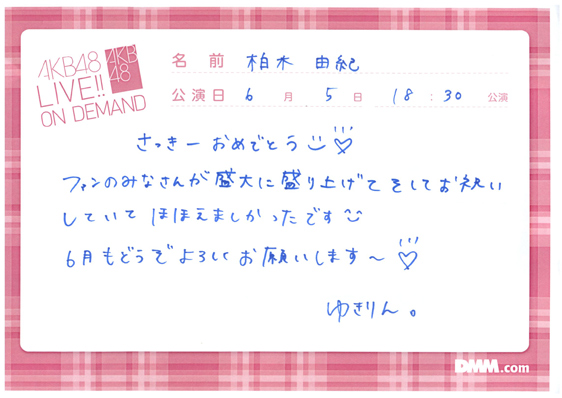 AKB48
LIVE!!
ON DEMAND
AKB
48
名前 柏木 由紀
公演日 6月 5日 18:30 公演
さっきー おめでとう
ファンのみなさんが 盛大に盛り上げて そしてお祝い
していて ほほえましかったです
6月もどうぞ よろしく お願いします〜
ゆきりん。
DMM.com